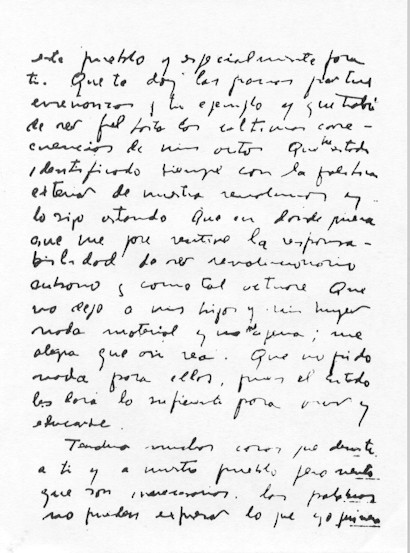 este pueblo y especialmente para
ti. Que te doy las gracias por tus
enseñanzas y tu ejemplo y que trataré
de ser fiel hasta las ultimas conse-
cuencias de mis actos Que he estado
identificado siempre con la politica
exterior de nuestra revolucion y
lo sigo estando Que en donde quiera
que me pare sentiré la responsa-
bilidad de ser revolucionario
cubano y como tal actuaré Que
no dejo a mis hijos y mi mujer
nada material y no me apena; me
alegra que asi sea. Que no pido
nada para ellos, pues el estado
les dará lo suficiente para vivir y
educarse.
Tendria muchas cosas que decirte
a ti y a nuestro pueblo pero siento
que son innecesarias. las palabras
no pueden expresar lo que yo quisiera